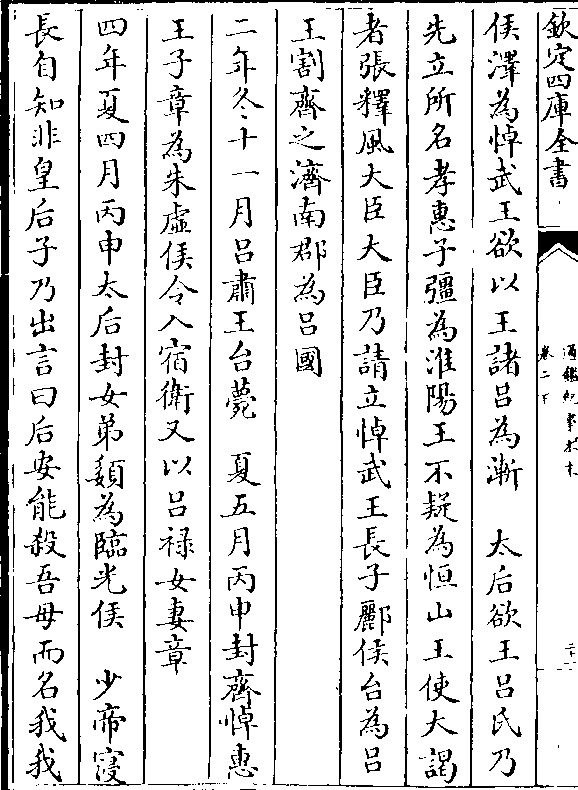 欽定四庫全書
通鑑紀事本末
卷二下
侯澤為悼武王欲以王諸吕為漸　太后欲王吕氏乃
先立所名孝惠子彊為淮陽王不疑為恒山王使大謁
者張釋風大臣大臣乃請立悼武王長子酈侯台為吕
王割齊之濟南郡為吕國
二年冬十一月吕肅王台薨　夏五月丙申封齊悼惠
王子章為朱虚侯令入宿衛又以吕禄女妻章
四年夏四月丙申太后封女弟嬃為臨光侯　少帝寖
長自知非皇后子乃出言曰后安能殺吾母而名我我